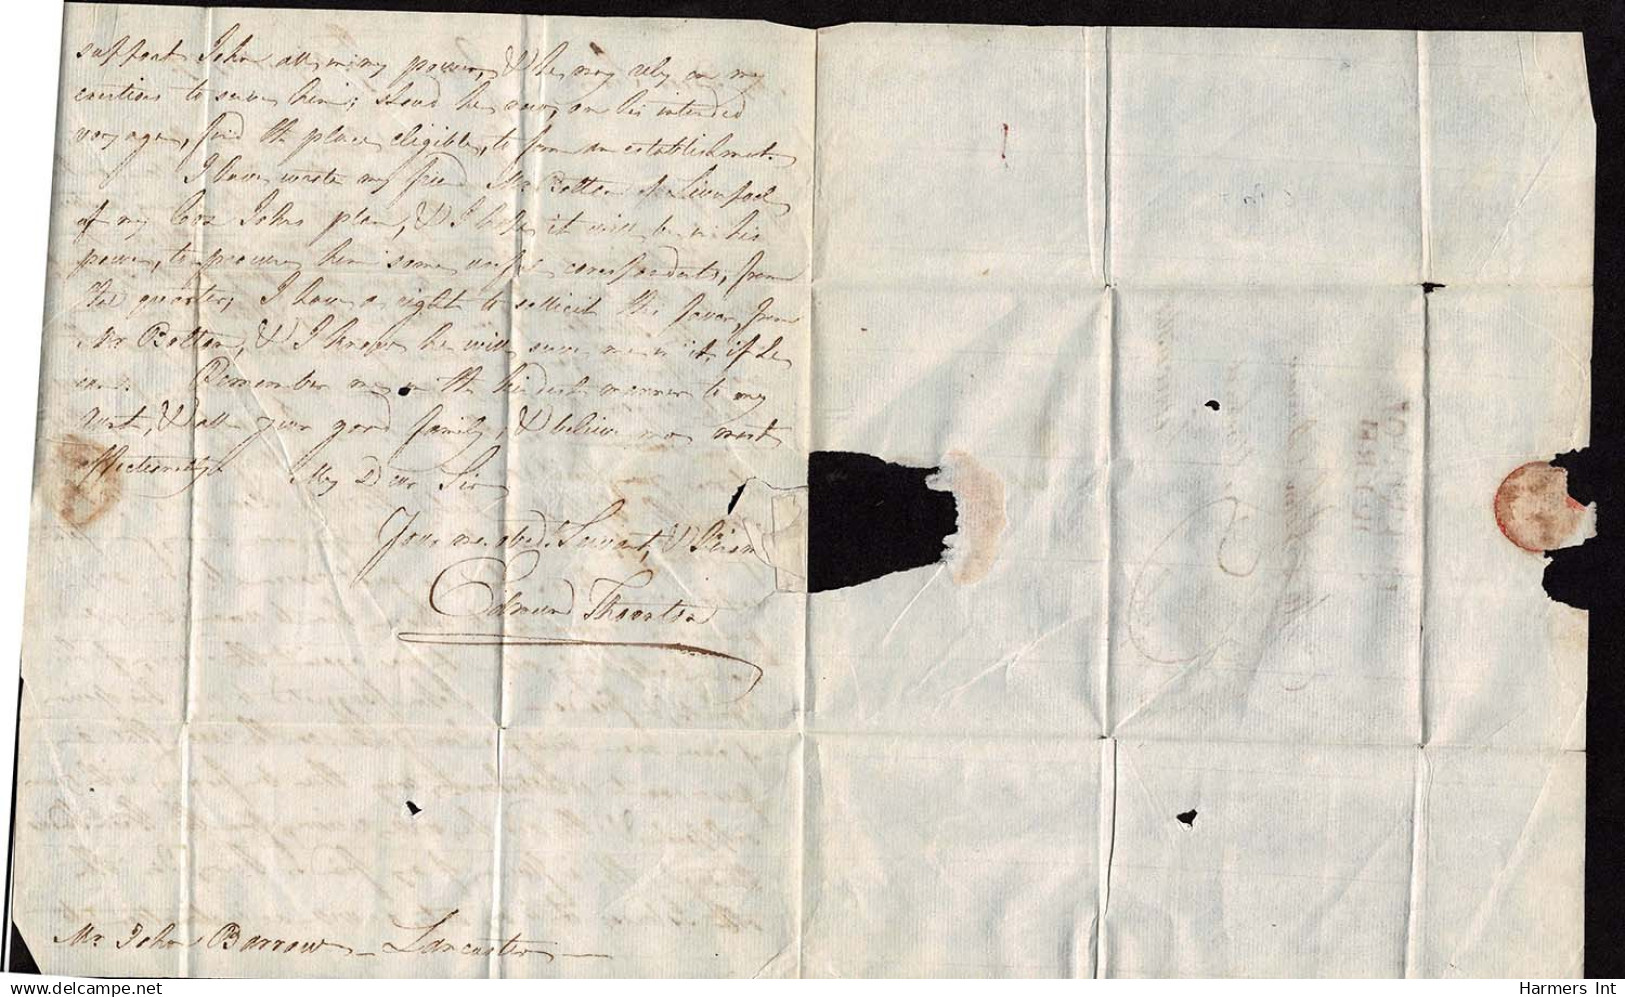 support John all in my power, & he may rely on my
exertions to serve him; shoud he now, on his intended
voyage, find the place eligible, to form an establishment.
I have wrote my friend Mr Bolton of Liverpool
of my Coz Johns plan, & I hope it will be in his
power, to procure him some useful correspondents, from
that quarter; I have a right to sollicit this favor, from
Mr Bolton, & I know he will serve me in it, if he
can. Remember me in the kindest manner to my
Aunt, & all your good family, & believe me most
affectionately
My Dear Sir
Your mo. obed. Servant, &
Edmund Thornton
Mr John Barrow - Lancaster
Harmers Int